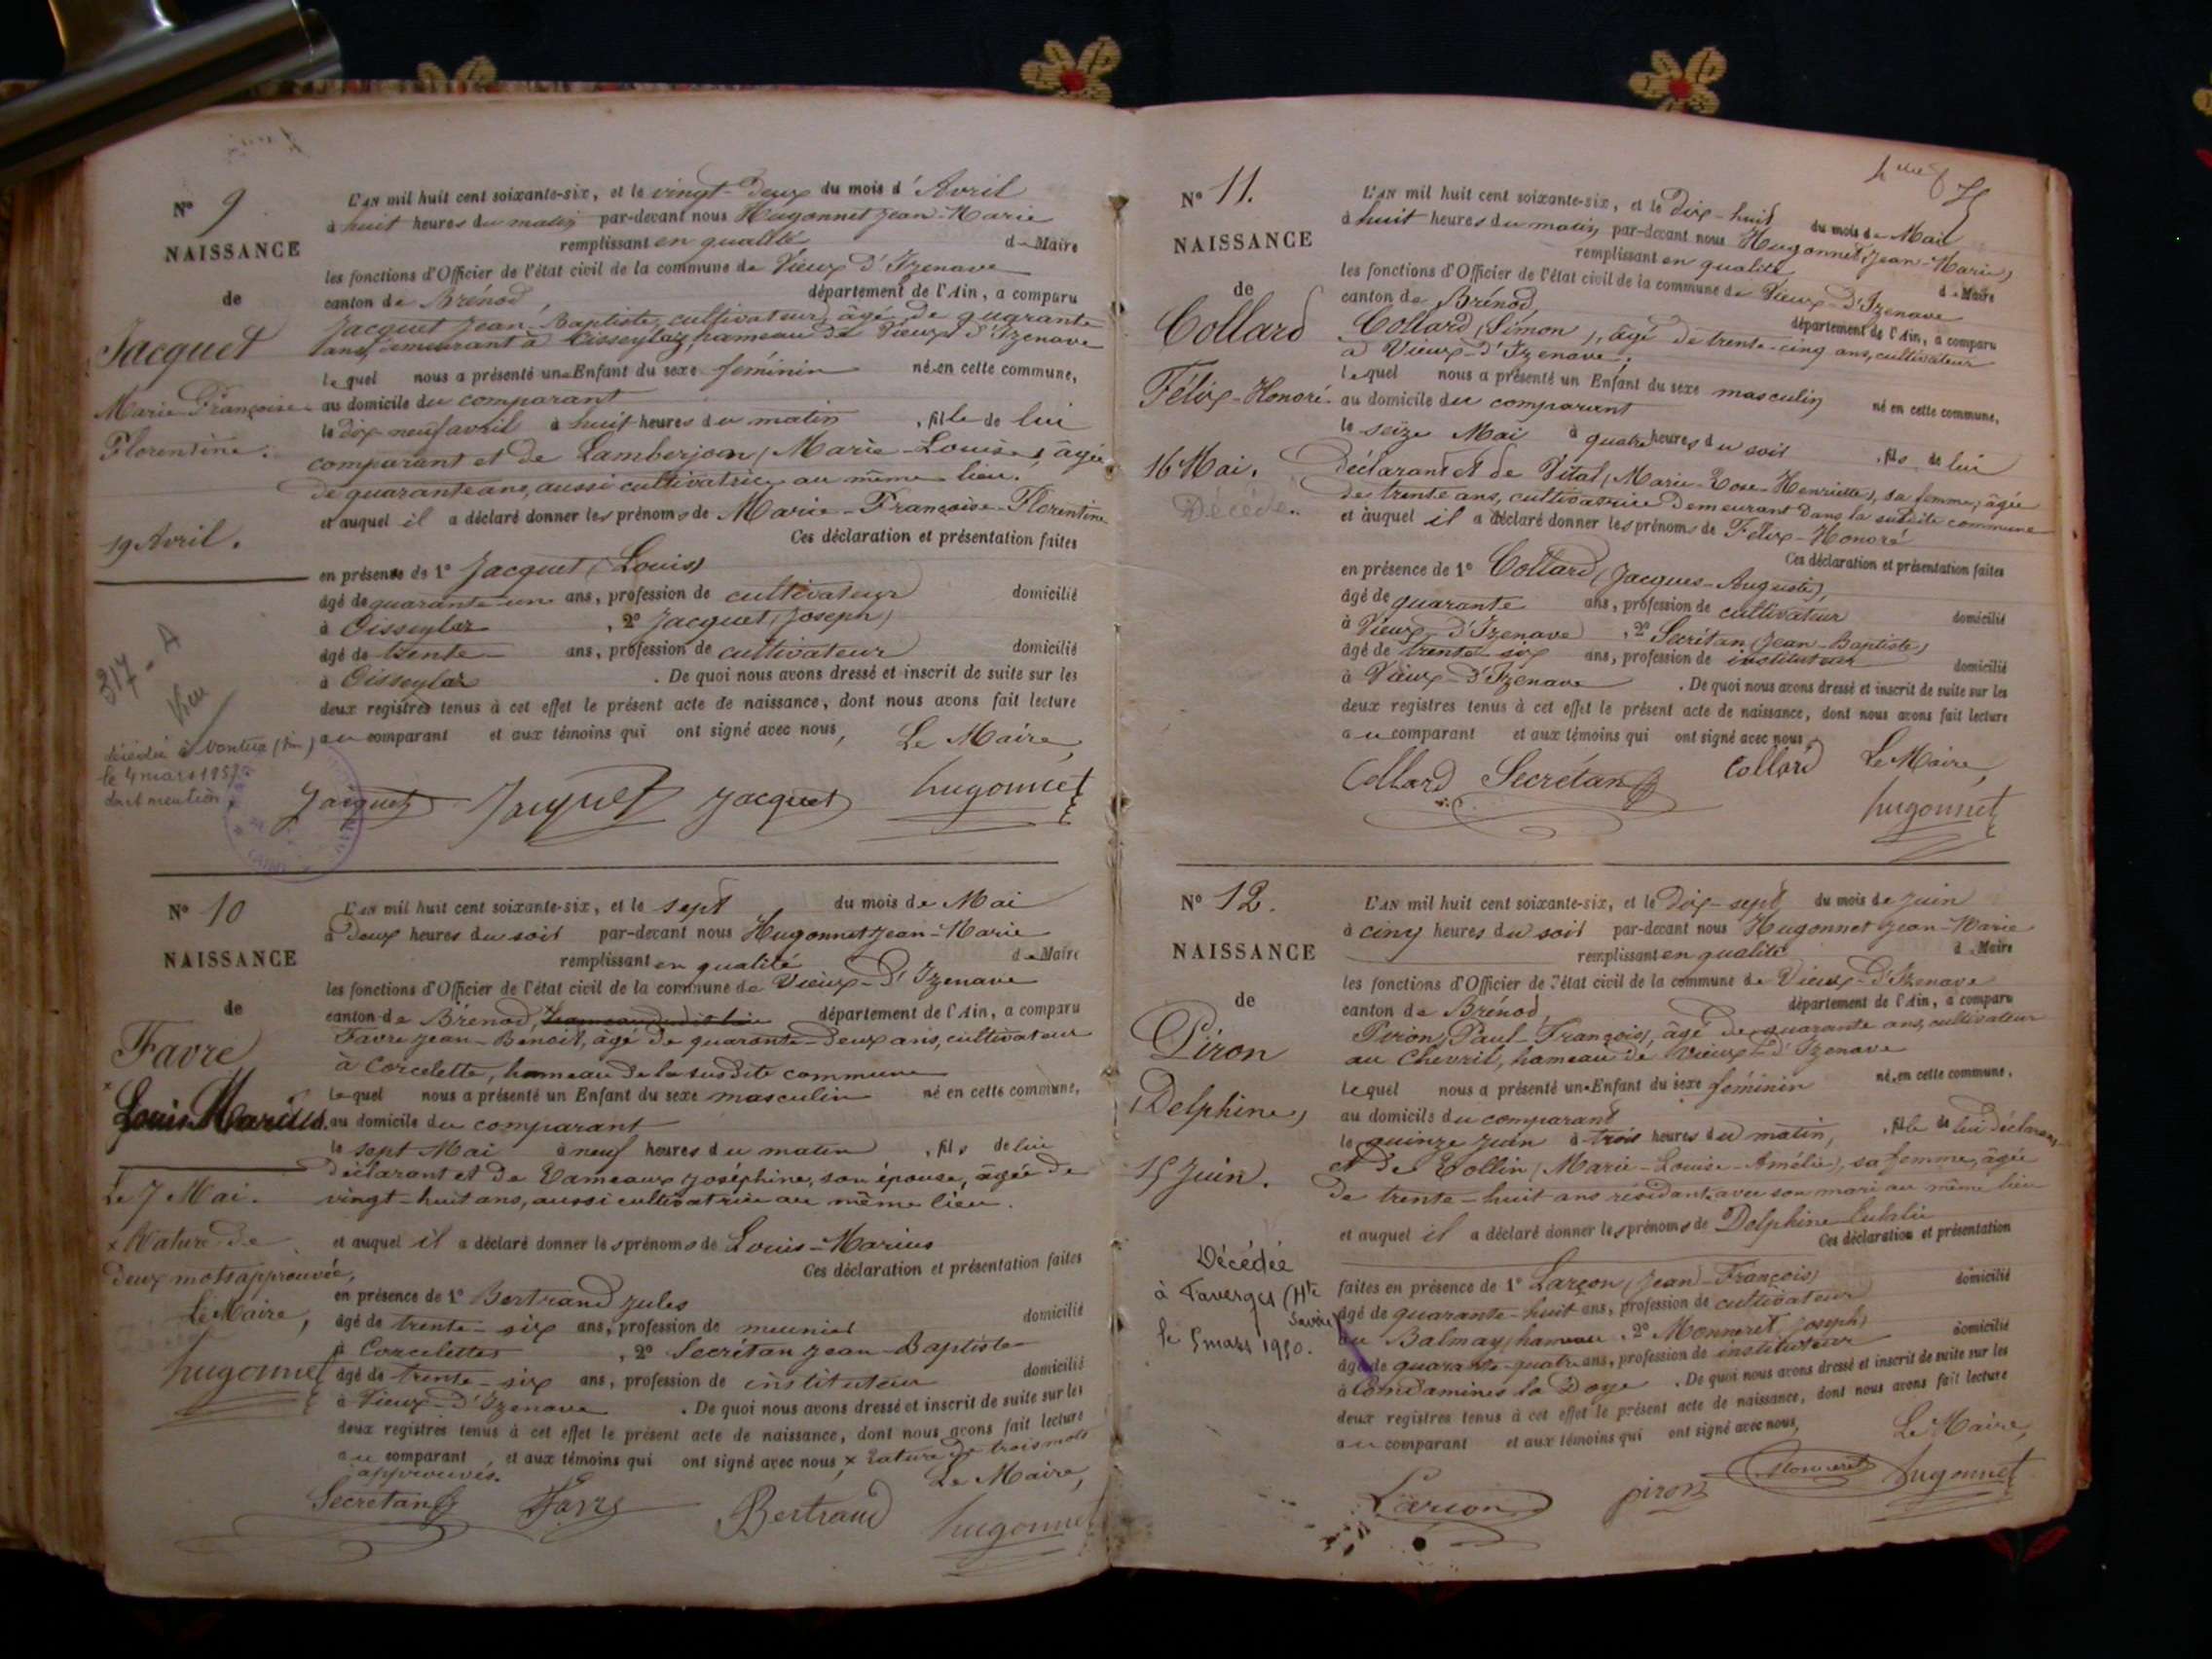 N° 9
NAISSANCE
de
Jacquet
Marie Françoise
Florentine.
19 Avril.
317 - A
décédée à
le 4 mars 195
dont mention
L'AN mil huit cent soixante-six, et le vingt-deux du mois d'Avril
à huit heures du matin par-devant nous Hugonnet Jean-Marie
remplissant en qualité de Maire
les fonctions d'Officier de l'état civil de la commune de Vieux d'Izenave
canton de Brénod, département de l'Ain, a comparu
Jacquet Jean-Baptiste, cultivateur, âgé de quarante
ans, demeurant à Oisseylaz, hameau de Vieux d'Izenave
lequel nous a présenté une Enfant du sexe féminin née en cette commune,
au domicile du comparant
le dix-neuf avril à huit heures du matin, fille de lui
comparant et de Lamberjoon (Marie-Louise), âgée
de quarante ans, aussi cultivatrice au même lieu.
et auquel il a déclaré donner les prénoms de Marie-Françoise-Florentine
Ces déclaration et présentation faites
en présence de 1° Jacquet (Louis)
âgé de quarante-un ans, profession de cultivateur domicilié
à Oisseylaz, 2° Jacquet (Joseph)
âgé de trente ans, profession de cultivateur domicilié
à Oisseylaz. De quoi nous avons dressé et inscrit de suite sur les
deux registres tenus à cet effet le présent acte de naissance, dont nous avons fait lecture
au comparant et aux témoins qui ont signé avec nous, Le Maire,
Jacquet Jacquet Jacquet hugonnet
N° 10
NAISSANCE
de
Favre
Louis Marius.
Le 7 Mai.
x Rature de
deux mots approuvée,
Le Maire,
hugonnet
L'AN mil huit cent soixante-six, et le sept du mois de Mai
à deux heures du soir par-devant nous Hugonnet Jean-Marie
remplissant en qualité de Maire
les fonctions d'Officier de l'état civil de la commune de Vieux-d'Izenave
canton de Brénod, département de l'Ain, a comparu
Favre Jean-Benoit, âgé de quarante-deux ans, cultivateur
à Corcelette, hameau de la susdite commune
lequel nous a présenté un Enfant du sexe masculin né en cette commune,
au domicile du comparant
le sept Mai à neuf heures du matin, fils de lui
déclarant et de Rameaux Joséphine, son épouse, âgée de
vingt-huit ans, aussi cultivatrice au même lieu.
et auquel il a déclaré donner les prénoms de Louis-Marius
Ces déclaration et présentation faites
en présence de 1° Bertrand Jules
âgé de trente-six ans, profession de meunier domicilié
à Corcelettes, 2° Secrétan Jean-Baptiste
âgé de trente-six ans, profession de instituteur domicilié
à Vieux-d'Izenave. De quoi nous avons dressé et inscrit de suite sur les
deux registres tenus à cet effet le présent acte de naissance, dont nous avons fait lecture
au comparant, et aux témoins qui ont signé avec nous, x rature de trois mots
approuvés. Le Maire,
Secrétan Favre Bertrand hugonnet
N° 11.
NAISSANCE
de
Collard
Félix-Honoré.
16 Mai.
Décédé.
L'AN mil huit cent soixante-six, et le dix-huit du mois de Mai
à huit heures du matin, par-devant nous Hugonnet (Jean-Marie)
remplissant en qualité de Maire
les fonctions d'Officier de l'état civil de la commune de Vieux-d'Izenave
canton de Brénod département de l'Ain, a comparu
Collard (Simon), âgé de trente-cinq ans, cultivateur
à Vieux-d'Izenave.
lequel nous a présenté un Enfant du sexe masculin né en cette commune,
au domicile du comparant
le seize Mai à quatre heures du soir, fils de lui
déclarant et de Vital (Marie-Rose-Henriette), sa femme, âgée
de trente ans, cultivatrice demeurant dans la susdite commune
et auquel il a déclaré donner les prénoms de Félix-Honoré
Ces déclaration et présentation faites
en présence de 1° Collard (Jacques-Auguste),
âgé de quarante ans, profession de cultivateur domicilié
à Vieux-d'Izenave, 2° Secrétan (Jean-Baptiste)
âgé de trente-six ans, profession de instituteur domicilié
à Vieux-d'Izenave. De quoi nous avons dressé et inscrit de suite sur les
deux registres tenus à cet effet le présent acte de naissance, dont nous avons fait lecture
au comparant et aux témoins qui ont signé avec nous,
Collard Secrétan Collard Le Maire,
hugonnet
N° 12.
NAISSANCE
de
Piron
(Delphine)
15 Juin.
Décédée
à Faverges (Hte
Savoie)
le 5 mars 1950.
L'AN mil huit cent soixante-six, et le dix-sept du mois de Juin
à cinq heures du soir par-devant nous Hugonnet Jean-Marie
remplissant en qualité de Maire
les fonctions d'Officier de l'état civil de la commune de Vieux-d'Izenave
canton de Brénod, département de l'Ain, a comparu
Piron (Paul-François), âgé de quarante ans, cultivateur
au Chevril, hameau de Vieux-d'Izenave
lequel nous a présenté une Enfant du sexe féminin née en cette commune,
au domicile du comparant
le quinze Juin à trois heures du matin, fille de lui déclarant
et de Collin (Marie-Louise-Amélie), sa femme, âgée
de trente-huit ans résidant avec son mari au même lieu
et auquel il a déclaré donner les prénoms de Delphine Eulalie
Ces déclaration et présentation
faites en présence de 1° Larçon (Jean-François) domicilié
âgé de quarante-huit ans, profession de cultivateur
au Balmay, hameau, 2° Monneret Joseph) domicilié
âgé de quarante-quatre ans, profession de instituteur
à Condamines la Doye. De quoi nous avons dressé et inscrit de suite sur les
deux registres tenus à cet effet le présent acte de naissance, dont nous avons fait lecture
au comparant et aux témoins qui ont signé avec nous, Le Maire,
Larçon piron Monneret hugonnet